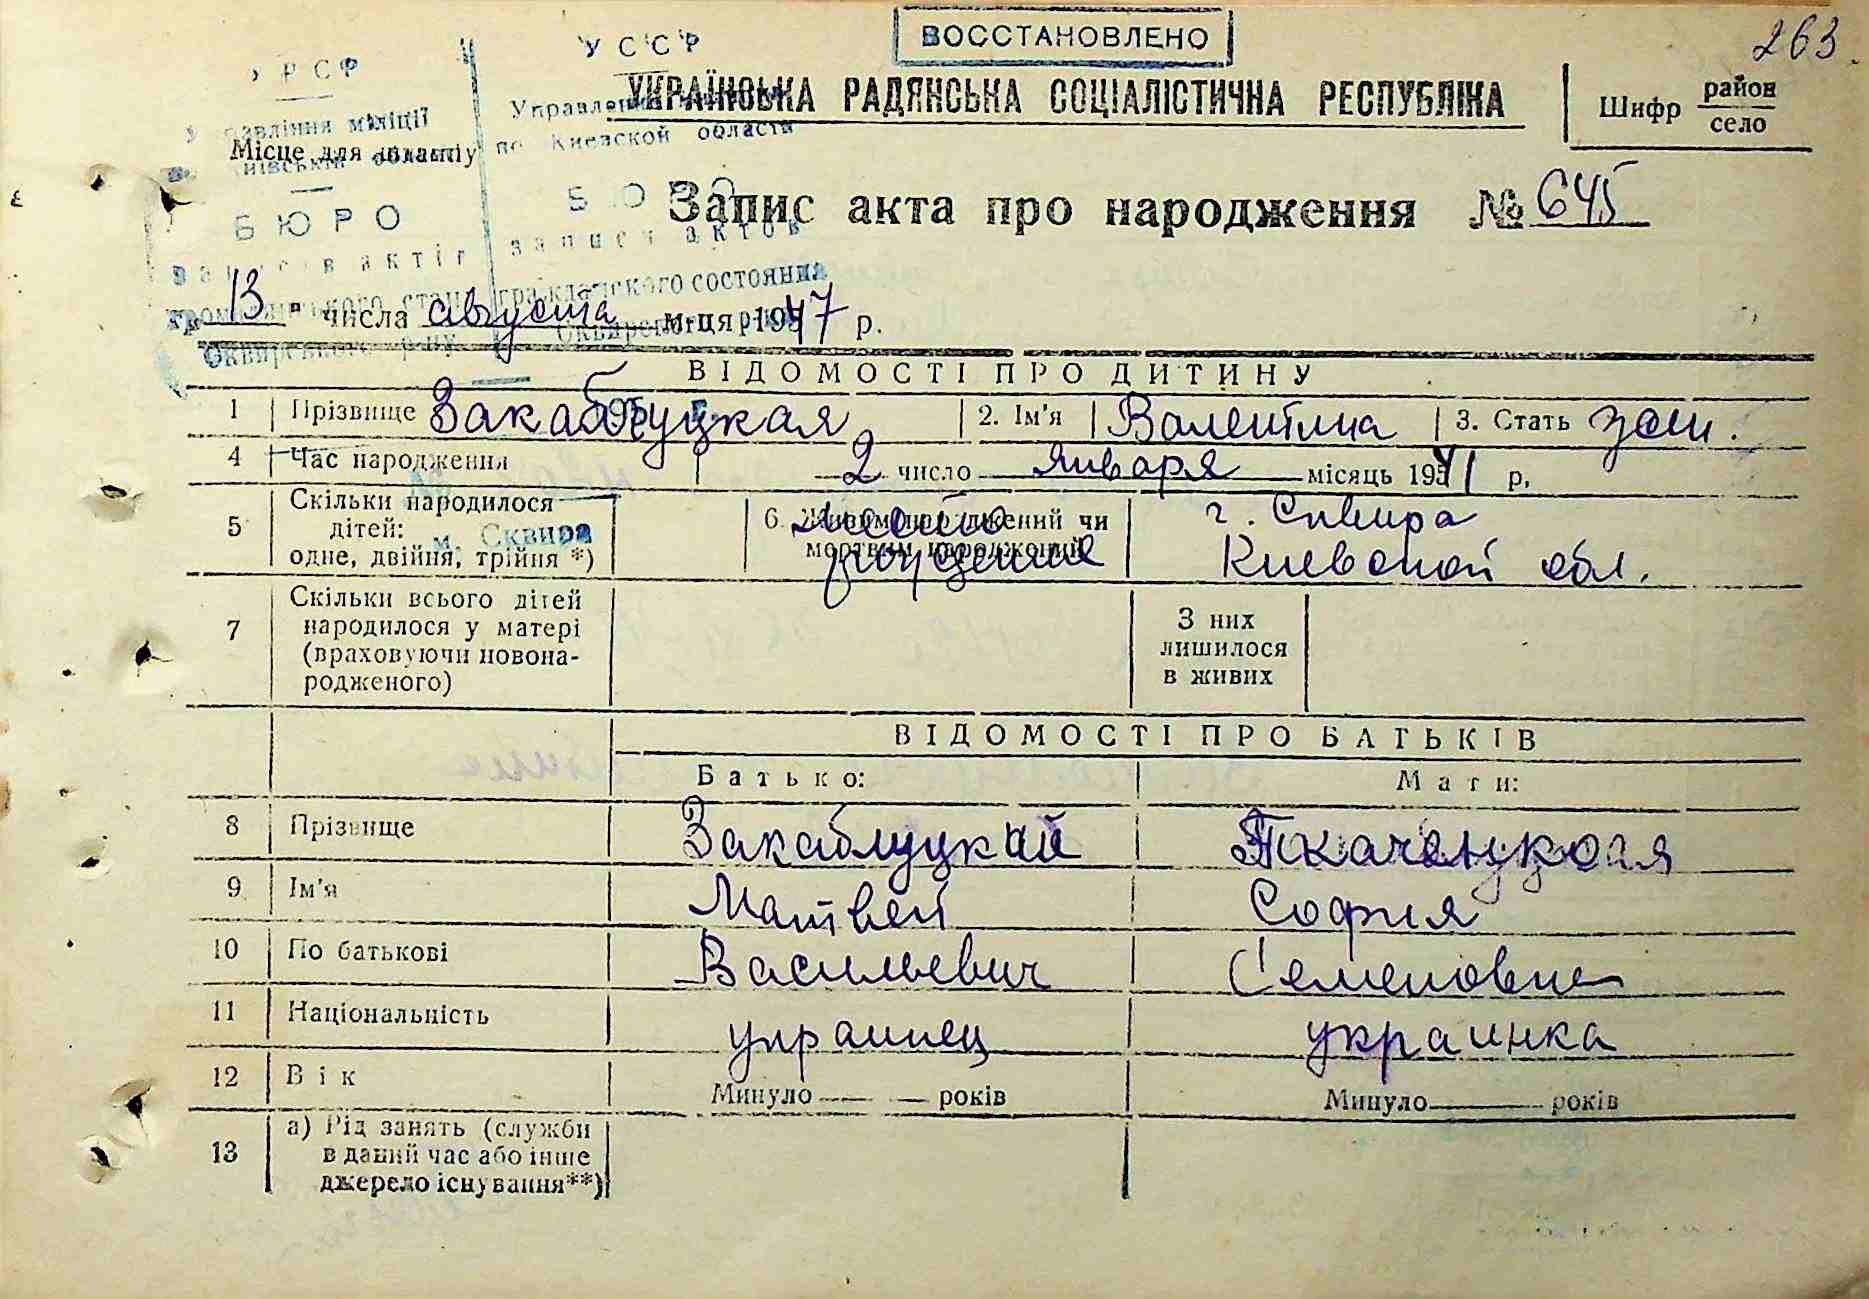 ВОССТАНОВЛЕНО
263.
УРСР
УССР
УКРАЇНСЬКА РАДЯНСЬКА СОЦІАЛІСТИЧНА РЕСПУБЛІКА
Шифр район
село
Управління міліції
Управление
по Киевской области
Місце для штампу
БЮРО
БЮРО
Запис акта про народження № 645
записи актов
гражданского состояния
"13" числа августа м-ця 1947 р.
Сквирського р-ну
ВІДОМОСТІ ПРО ДИТИНУ
1 Прізвище Закаблуцкая 2. Ім'я Валентина 3. Стать жен.
4 Час народження 2 число января місяць 1941 р.
5 Скільки народилося дітей: одне, двійня, трійня *)
м. Сквира
6. Живим народжений чи мертвим народжений
место рождения
г. Сквира
Киевской обл.
7 Скільки всього дітей народилося у матері (враховуючи новонародженого)
З них лишилося в живих
ВІДОМОСТІ ПРО БАТЬКІВ
Батько: Мати:
8 Прізвище Закаблуцкий
9 Ім'я Матвей София
10 По батькові Васильевич Семеновна
11 Національність украинец украинка
12 Вік Минуло років Минуло років
13 а) Рід занять (служби
в даний час або інше
джерело існування**)